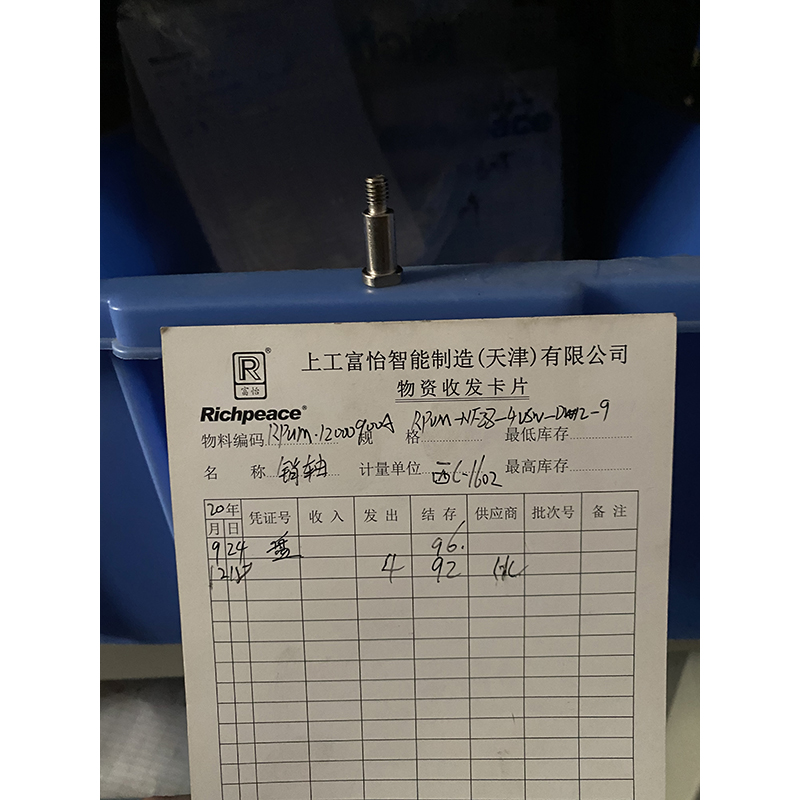 R®
富怡
上工富怡智能制造(天津)有限公司
物资收发卡片
Richpeace®
物料编码 RPUM·12000900A 规格 最低库存
名称 销轴 计量单位 西C-1602 最高库存
20年 凭证号 收入 发出 结存 供应商 批次号 备注
月 日
9 24 盘 96.
12 4 92